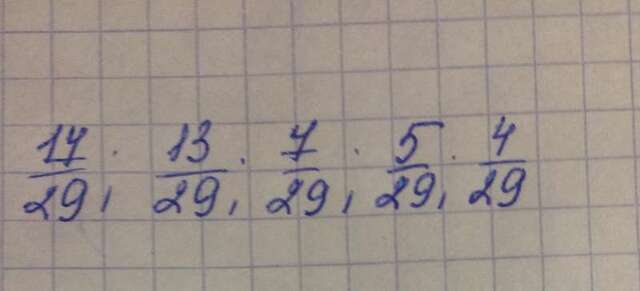 17/29; 13/29; 7/29; 5/29; 4/29